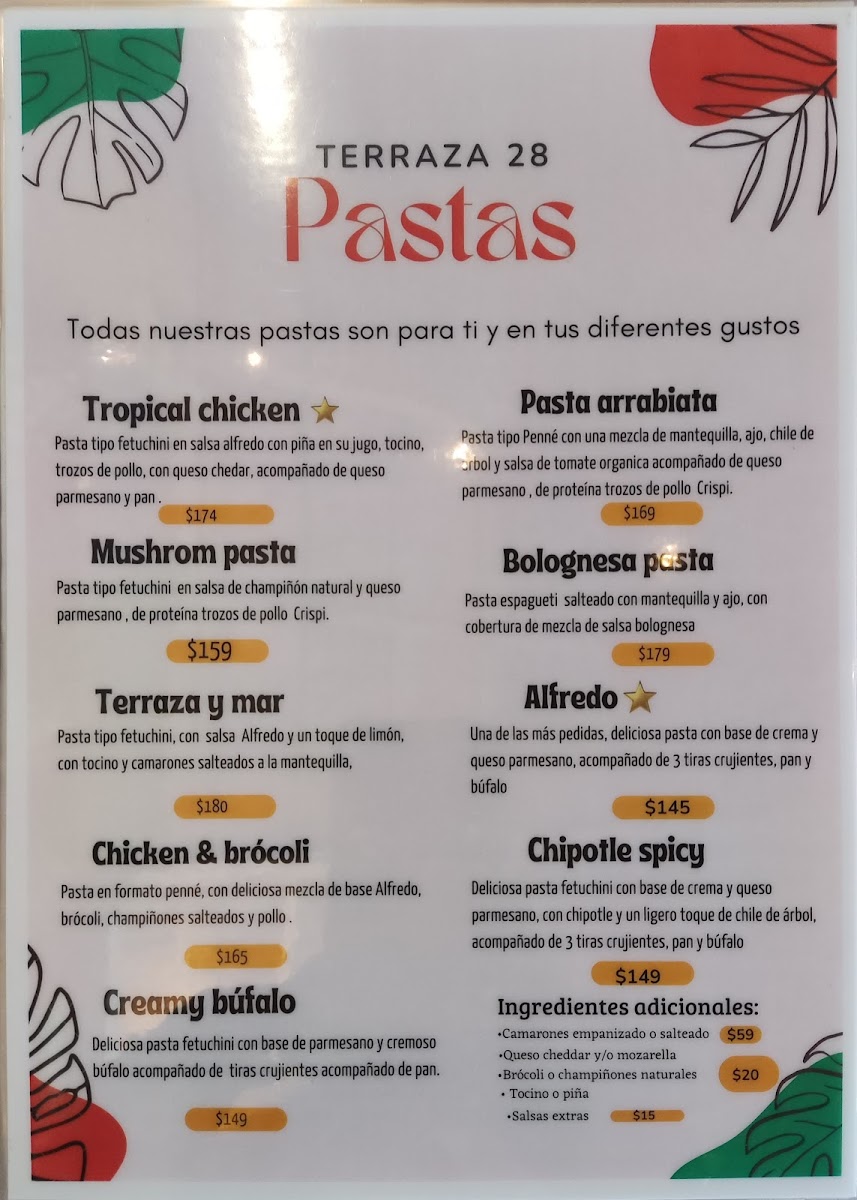 TERRAZA 28
Pastas
Todas nuestras pastas son para ti y en tus diferentes gustos
Tropical chicken
Pasta tipo fetuchini en salsa alfredo con piña en su jugo, tocino,
trozos de pollo, con queso chedar, acompañado de queso
parmesano y pan .
$174
Mushrom pasta
Pasta tipo fetuchini en salsa de champiñón natural y queso
parmesano , de proteína trozos de pollo Crispi.
$159
Terraza y mar
Pasta tipo fetuchini, con salsa Alfredo y un toque de limón,
con tocino y camarones salteados a la mantequilla,
$180
Chicken & brócoli
Pasta en formato penné, con deliciosa mezcla de base Alfredo,
brócoli, champiñones salteados y pollo .
$165
Creamy búfalo
Deliciosa pasta fetuchini con base de parmesano y cremoso
búfalo acompañado de tiras crujientes acompañado de pan.
$149
Pasta arrabiata
Pasta tipo Penné con una mezcla de mantequilla, ajo, chile de
árbol y salsa de tomate organica acompañado de queso
parmesano , de proteína trozos de pollo Crispi.
$169
Bolognesa pasta
Pasta espagueti salteado con mantequilla y ajo, con
cobertura de mezcla de salsa bolognesa
$179
Alfredo
Una de las más pedidas, deliciosa pasta con base de crema y
queso parmesano, acompañado de 3 tiras crujientes, pan y
búfalo
$145
Chipotle spicy
Deliciosa pasta fetuchini con base de crema y queso
parmesano, con chipotle y un ligero toque de chile de árbol,
acompañado de 3 tiras crujientes, pan y búfalo
$149
Ingredientes adicionales:
•Camarones empanizado o salteado $59
•Queso cheddar y/o mozarella
•Brócoli o champiñones naturales $20
• Tocino o piña
•Salsas extras $15